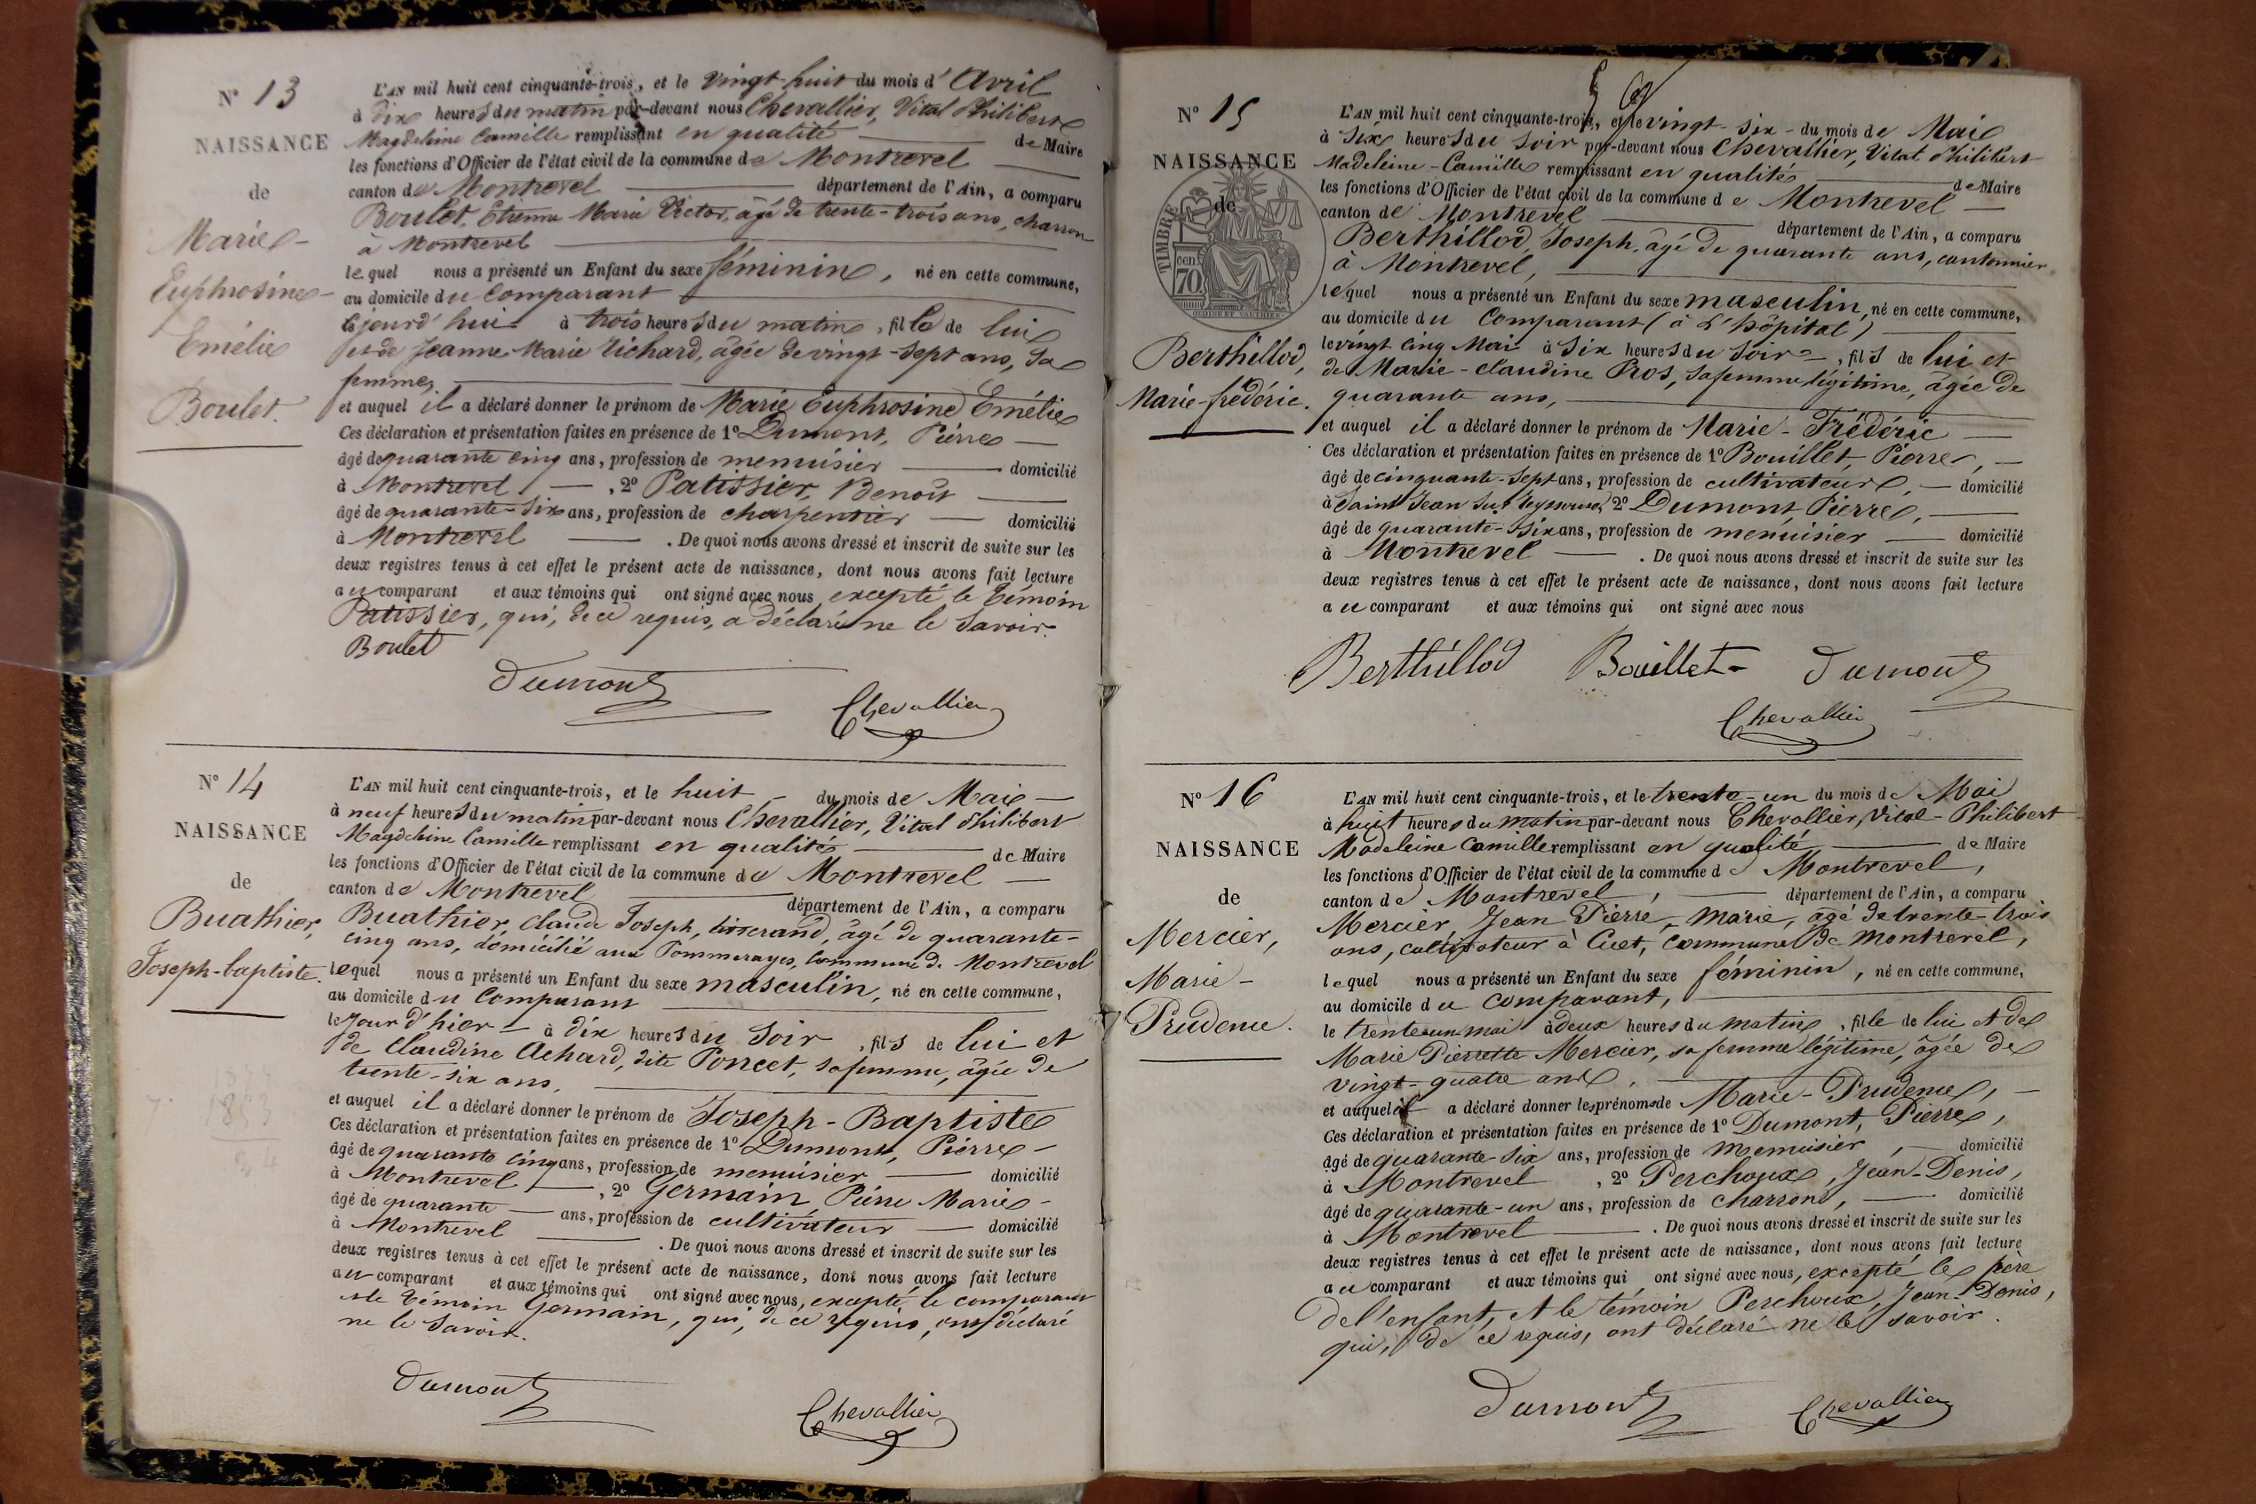 N° 13
NAISSANCE
de
Marie-
Euphrosine-
Emélie
Boulet.
L'AN mil huit cent cinquante-trois, et le vingt-huit du mois d'Avril
à dix heures du matin par-devant nous Chevallier, Vital Philibert
Magdeleine Camille remplissant en qualité de Maire
les fonctions d'Officier de l'état civil de la commune de Montrevel
canton de Montrevel département de l'Ain, a comparu
Boulet, Etienne Marie Victor, âgé de trente-trois ans, charron
à Montrevel
lequel nous a présenté un Enfant du sexe féminin, né en cette commune,
au domicile du comparant
cejourd'hui à trois heures du matin, fille de lui
et de Jeanne Marie Richard, âgée de vingt-sept ans, sa
femme,
et auquel il a déclaré donner le prénom de Marie Euphrosine Emélie
Ces déclaration et présentation faites en présence de 1° Dumont, Pierre
âgé de quarante cinq ans, profession de menuisier domicilié
à Montrevel, 2° Patissier, Benoît
âgé de quarante-six ans, profession de charpentier domicilié
à Montrevel. De quoi nous avons dressé et inscrit de suite sur les
deux registres tenus à cet effet le présent acte de naissance, dont nous avons fait lecture
au comparant et aux témoins qui ont signé avec nous excepté le témoin
Patissier, qui, de ce requis, a déclaré ne le savoir.
Boulet
Dumont
Chevallier
N° 14
NAISSANCE
de
Buathier,
Joseph-baptiste.
L'AN mil huit cent cinquante-trois, et le huit du mois de Mai
à neuf heures du matin par-devant nous Chevallier, Vital Philibert
Magdeleine Camille remplissant en qualité de Maire
les fonctions d'Officier de l'état civil de la commune de Montrevel
canton de Montrevel département de l'Ain, a comparu
Buathier, Claude Joseph, tisserand, âgé de quarante-
cinq ans, domicilié aux Pommerayes, commune de Montrevel
lequel nous a présenté un Enfant du sexe masculin, né en cette commune,
au domicile du comparant
le jour d'hier à dix heures du soir, fils de lui et
de Claudine Achard, dite Poncet, sa femme, âgée de
trente-six ans,
et auquel il a déclaré donner le prénom de Joseph-Baptiste
Ces déclaration et présentation faites en présence de 1° Dumont, Pierre
âgé de quarante cinq ans, profession de menuisier domicilié
à Montrevel, 2° Germain, Pierre Marie
âgé de quarante ans, profession de cultivateur domicilié
à Montrevel. De quoi nous avons dressé et inscrit de suite sur les
deux registres tenus à cet effet le présent acte de naissance, dont nous avons fait lecture
au comparant et aux témoins qui ont signé avec nous, excepté le comparant
et le témoin Germain, qui, de ce requis, ont déclaré
ne le savoir.
Dumont
Chevallier
N° 15
NAISSANCE
de
TIMBRE
70 cent.
Berthillod,
Marie-frédéric.
L'AN mil huit cent cinquante-trois, et le vingt-six du mois de Mai
à six heures du soir par-devant nous Chevallier, Vital Philibert
Madeleine-Camille remplissant en qualité de Maire
les fonctions d'Officier de l'état civil de la commune de Montrevel
canton de Montrevel département de l'Ain, a comparu
Berthillod, Joseph, âgé de quarante ans, cantonnier
à Montrevel,
lequel nous a présenté un Enfant du sexe masculin, né en cette commune,
au domicile du comparant (à l'hôpital)
le vingt cinq Mai à six heures du soir, fils de lui et
de Marie-Claudine Pros, sa femme légitime, âgée de
quarante ans,
et auquel il a déclaré donner le prénom de Marie-Frédéric
Ces déclaration et présentation faites en présence de 1° Bouillet, Pierre,
âgé de cinquante-sept ans, profession de cultivateur, domicilié
à Saint Jean sur Reyssouze, 2° Dumont Pierre,
âgé de quarante-six ans, profession de menuisier domicilié
à Montrevel. De quoi nous avons dressé et inscrit de suite sur les
deux registres tenus à cet effet le présent acte de naissance, dont nous avons fait lecture
au comparant et aux témoins qui ont signé avec nous
Berthillod Bouillet Dumont
Chevallier
N° 16
NAISSANCE
de
Mercier,
Marie-
Prudence.
L'AN mil huit cent cinquante-trois, et le trente-un du mois de Mai
à huit heures du matin par-devant nous Chevallier, Vital-Philibert
Madeleine Camille remplissant en qualité de Maire
les fonctions d'Officier de l'état civil de la commune de Montrevel,
canton de Montrevel, département de l'Ain, a comparu
Mercier, Jean Pierre, Marie, âgé de trente-trois
ans, cultivateur à Cuet, commune de Montrevel,
lequel nous a présenté un Enfant du sexe féminin, né en cette commune,
au domicile du comparant,
le trente un mai à deux heures du matin, fille de lui et de
Marie Pierrette Mercier, sa femme légitime, âgée de
vingt-quatre ans,
et auquel il a déclaré donner les prénoms de Marie-Prudence,
Ces déclaration et présentation faites en présence de 1° Dumont, Pierre,
âgé de quarante-six ans, profession de menuisier, domicilié
à Montrevel, 2° Perchoux, Jean-Denis,
âgé de quarante-un ans, profession de charron, domicilié
à Montrevel. De quoi nous avons dressé et inscrit de suite sur les
deux registres tenus à cet effet le présent acte de naissance, dont nous avons fait lecture
au comparant et aux témoins qui ont signé avec nous, excepté le père
de l'enfant, et le témoin Perchoux, Jean-Denis,
qui, de ce requis, ont déclaré ne le savoir.
Dumont
Chevallier